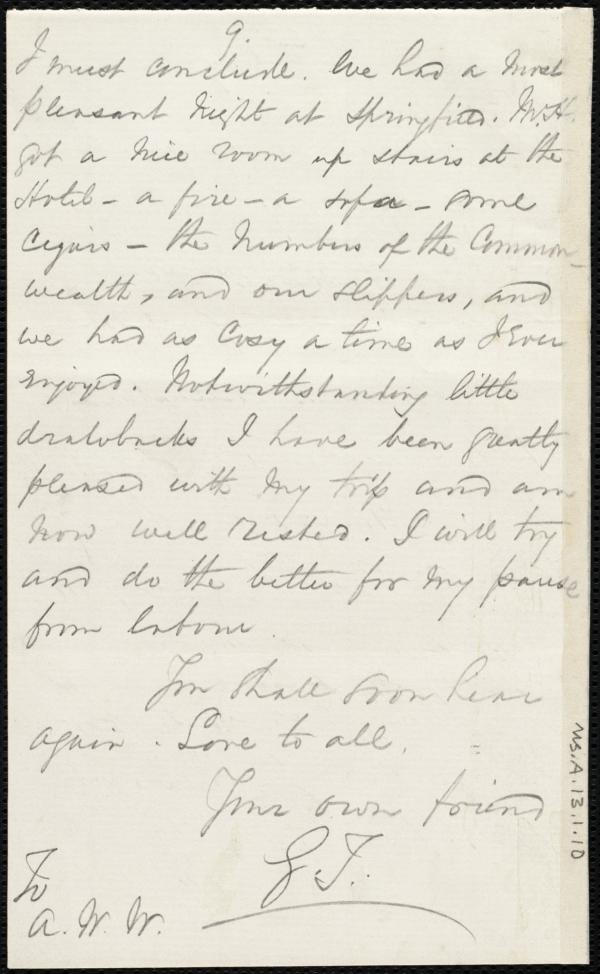 9.
I must conclude. We had a most
pleasant night at Springfield. Mr. H.
got a nice room up stairs at the
Hotel – a fire – a sofa – some
cigars – the numbers of the Common-
wealth, and our slippers, and
we had as cosy a time as I ever
enjoyed. Notwithstanding little
drawbacks I have been greatly
pleased with my trip and am
now well rested. I will try
and do the better for my pause
from labour.
You shall soon hear
again. Love to all.
Your own friend
G.T.
To
A. W. W.
MS.A.13.1.10